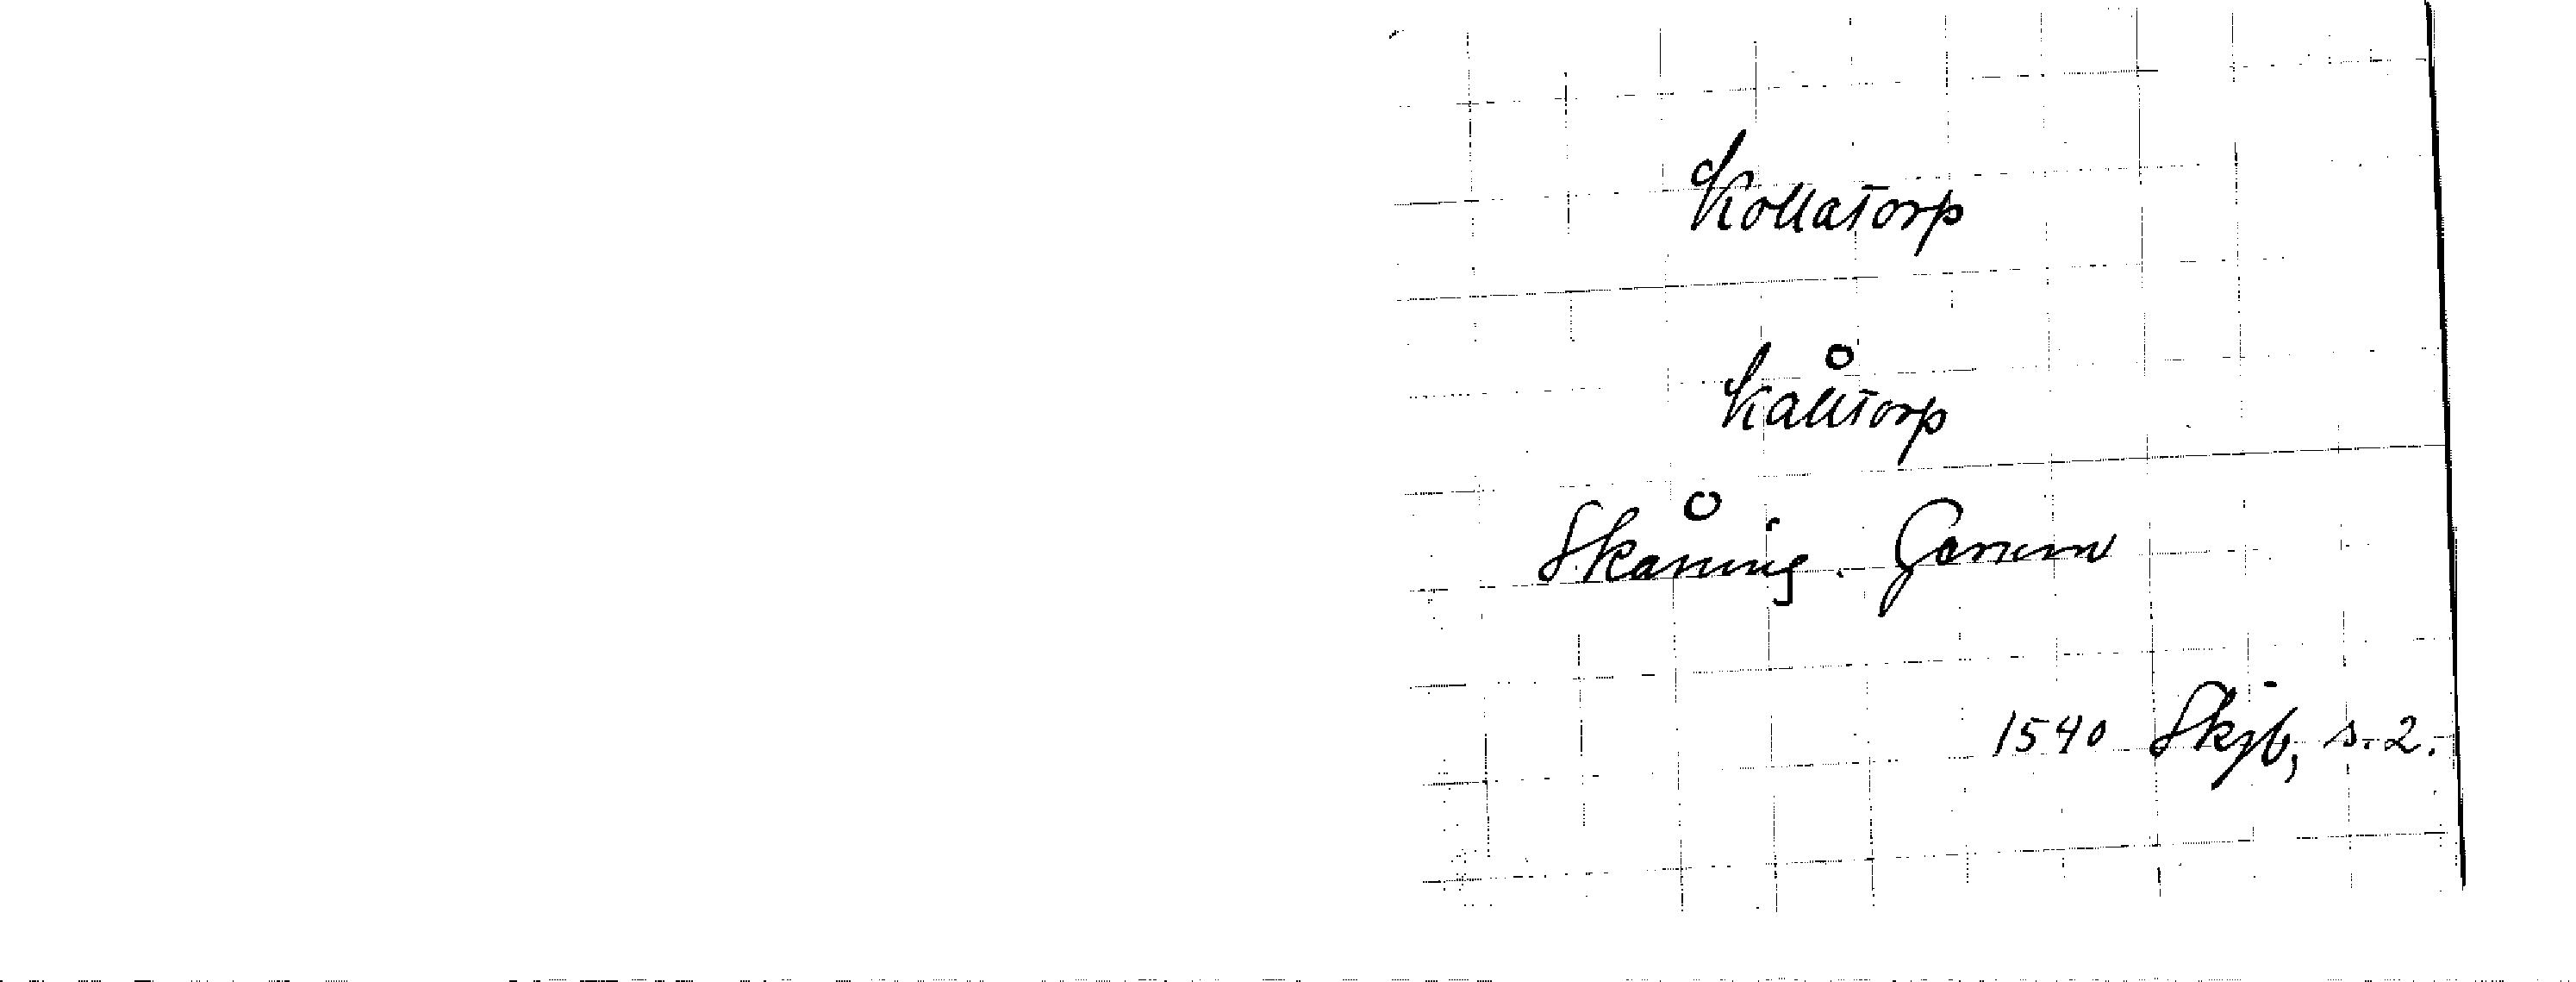 Kollatorp
Kålltorp
Skåning. Gerum
1540 Skjb, s. 2.